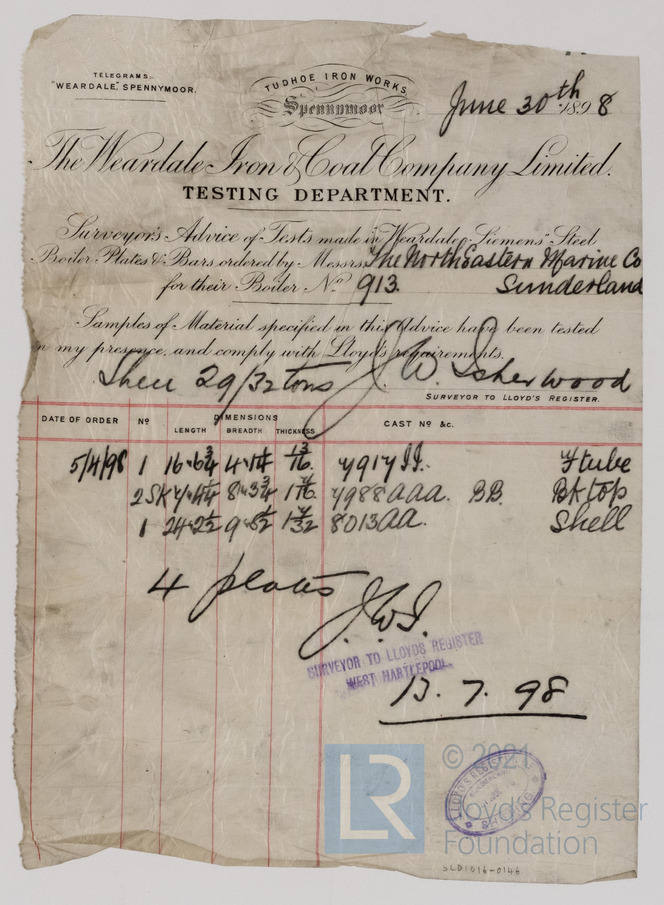 TELEGRAMS:
"WEARDALE," SPENNYMOOR.
TUDHOE IRON WORKS
Spennymoor
June 30th 1898
The Weardale Iron & Coal Company Limited.
TESTING DEPARTMENT.
Surveyor's Advice of Tests made in "Weardale Siemens" Steel
Boiler Plates & Bars ordered by Messrs. The North Eastern Marine Co
for their Boiler No. 913. Sunderland
Samples of Material specified in this Advice have been tested
in my presence, and comply with Lloyd's requirements.
Shell 29/32 tons J. W. Isherwood
SURVEYOR TO LLOYD'S REGISTER.
DATE OF ORDER No DIMENSIONS LENGTH BREADTH THICKNESS CAST No &c.
5/4/98 1 Ftube
2 BB. Bk top
1 8013AA. Shell
4 plates
J.W.I.
SURVEYOR TO LLOYDS REGISTER
WEST HARTLEPOOL
13.7.98
LLOYD'S REGISTER
SHIPPING
LR
© 2021
Lloyd's Register
Foundation
SLD1016-0148